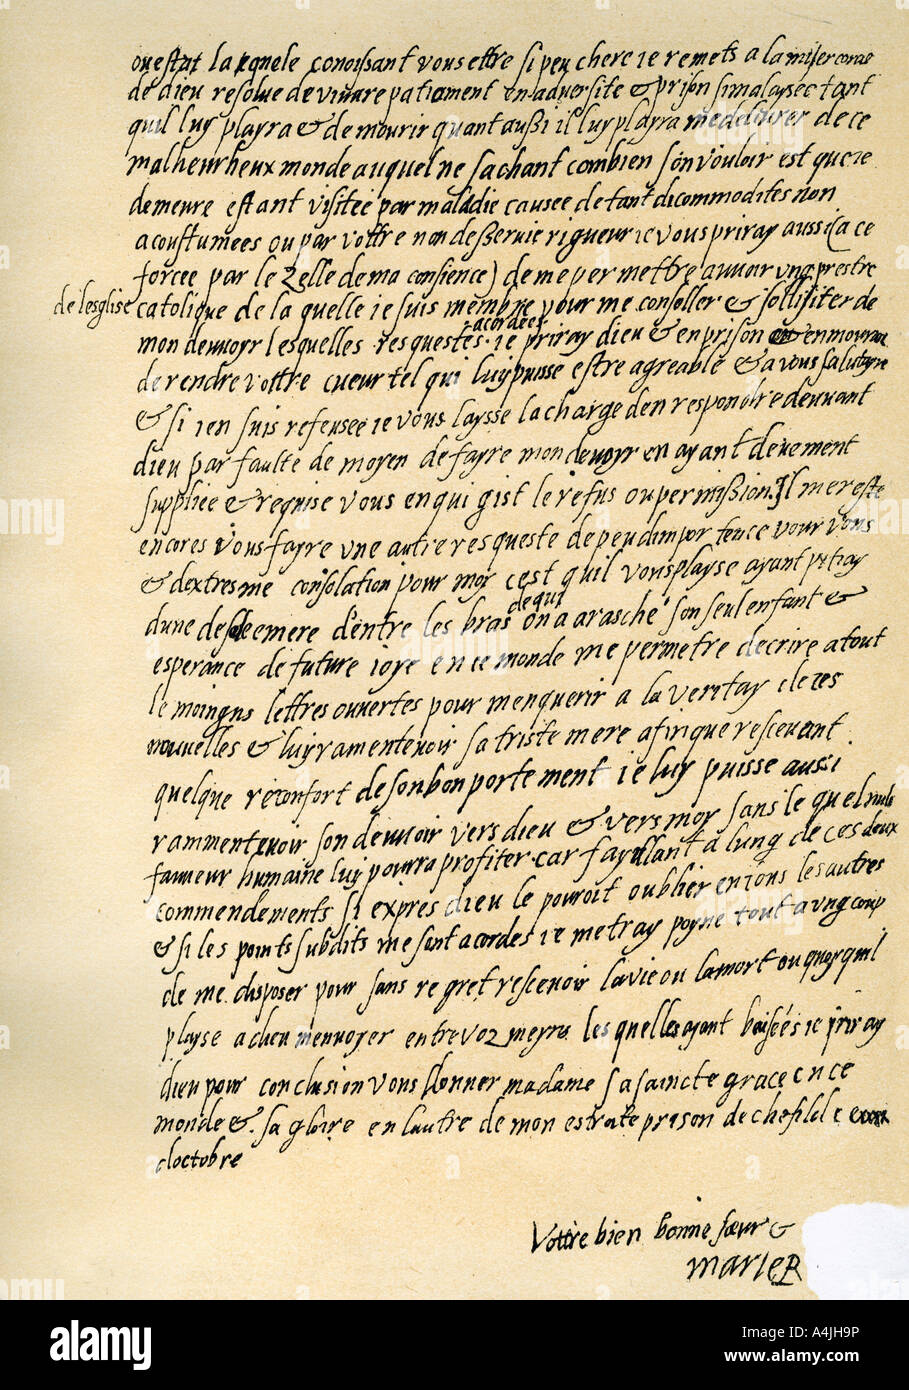 ou estat la quele conoissant vous estre si peu chere ie remets a la misericorde
de dieu resolue de vivre patiemment en adversite & prison si malaysee tant
quil luy playra & de mourir quant aussi il luy playra me delivrer de ce
malheurheux monde auquel ne sachant combien son vouloir est que ie
demeure estant visitee par maladie causee de tant dicommodites non
acoustumees ou par vottre non desservie rigueur ie vous priray aussi (a ce
forcee par le zelle de ma consience) de me permettre avvoir ung prestre
de lesglise catolique de la quelle ie suis membre pour me consoller & sollisiter de
acordees
mon devvoyr lesquelles resquestes ie priray dieu & en prison & en mourant
de rendre vottre cueur tel qui luy puisse estre agreable & a vous salutayre
& si ien suis refeusee ie vous laysse la charge den respondre devvant
dieu par faulte de moyen de fayre mon devoyr en ayant deuement
suppliee & requise vous en qui gist le refus ou permission. Il me reste
encores vous fayre une autre resqueste de peu dimportence pour vous
& dextresme consolation pour moy cest quil vous playse ayant pitay
de qui
dune desolee mere dentre les bras on a arasche son seul enfant &
esperance de future ioye en ce monde me permetre decrire a tout
le moingns lettres ouvertes pour menquerir a la veritay de ces
nouvelles & luy ramentevoir sa triste mere afin que rescevant
quelque reconfort de son bon portement ie luy puisse aussi
rammentevoir son devvoir vers dieu & vers moy sans le quel nulle
fanveur humaine luy pourra profiter car fayllant a lung de ces deux
commendements si expres dieu le pouroit oublier en tous les autres
& si les points subdits me sont acordes ie metray poyne tout a ung coup
de me disposer pour sans regret rescevoir la vie ou la mort ou quoy quil
playse a dieu menvoyer entre voz meyns les quelles ayant baisées ie priray
dieu pour conclusion vous donner madame sa saincte grace en ce
monde & sa gloire en lautre de mon estroite prison de chefild le
doctobre
Vottre bien bonne sœur &
MARIE R
alamy
Image ID: A4JH9P
www.alamy.com